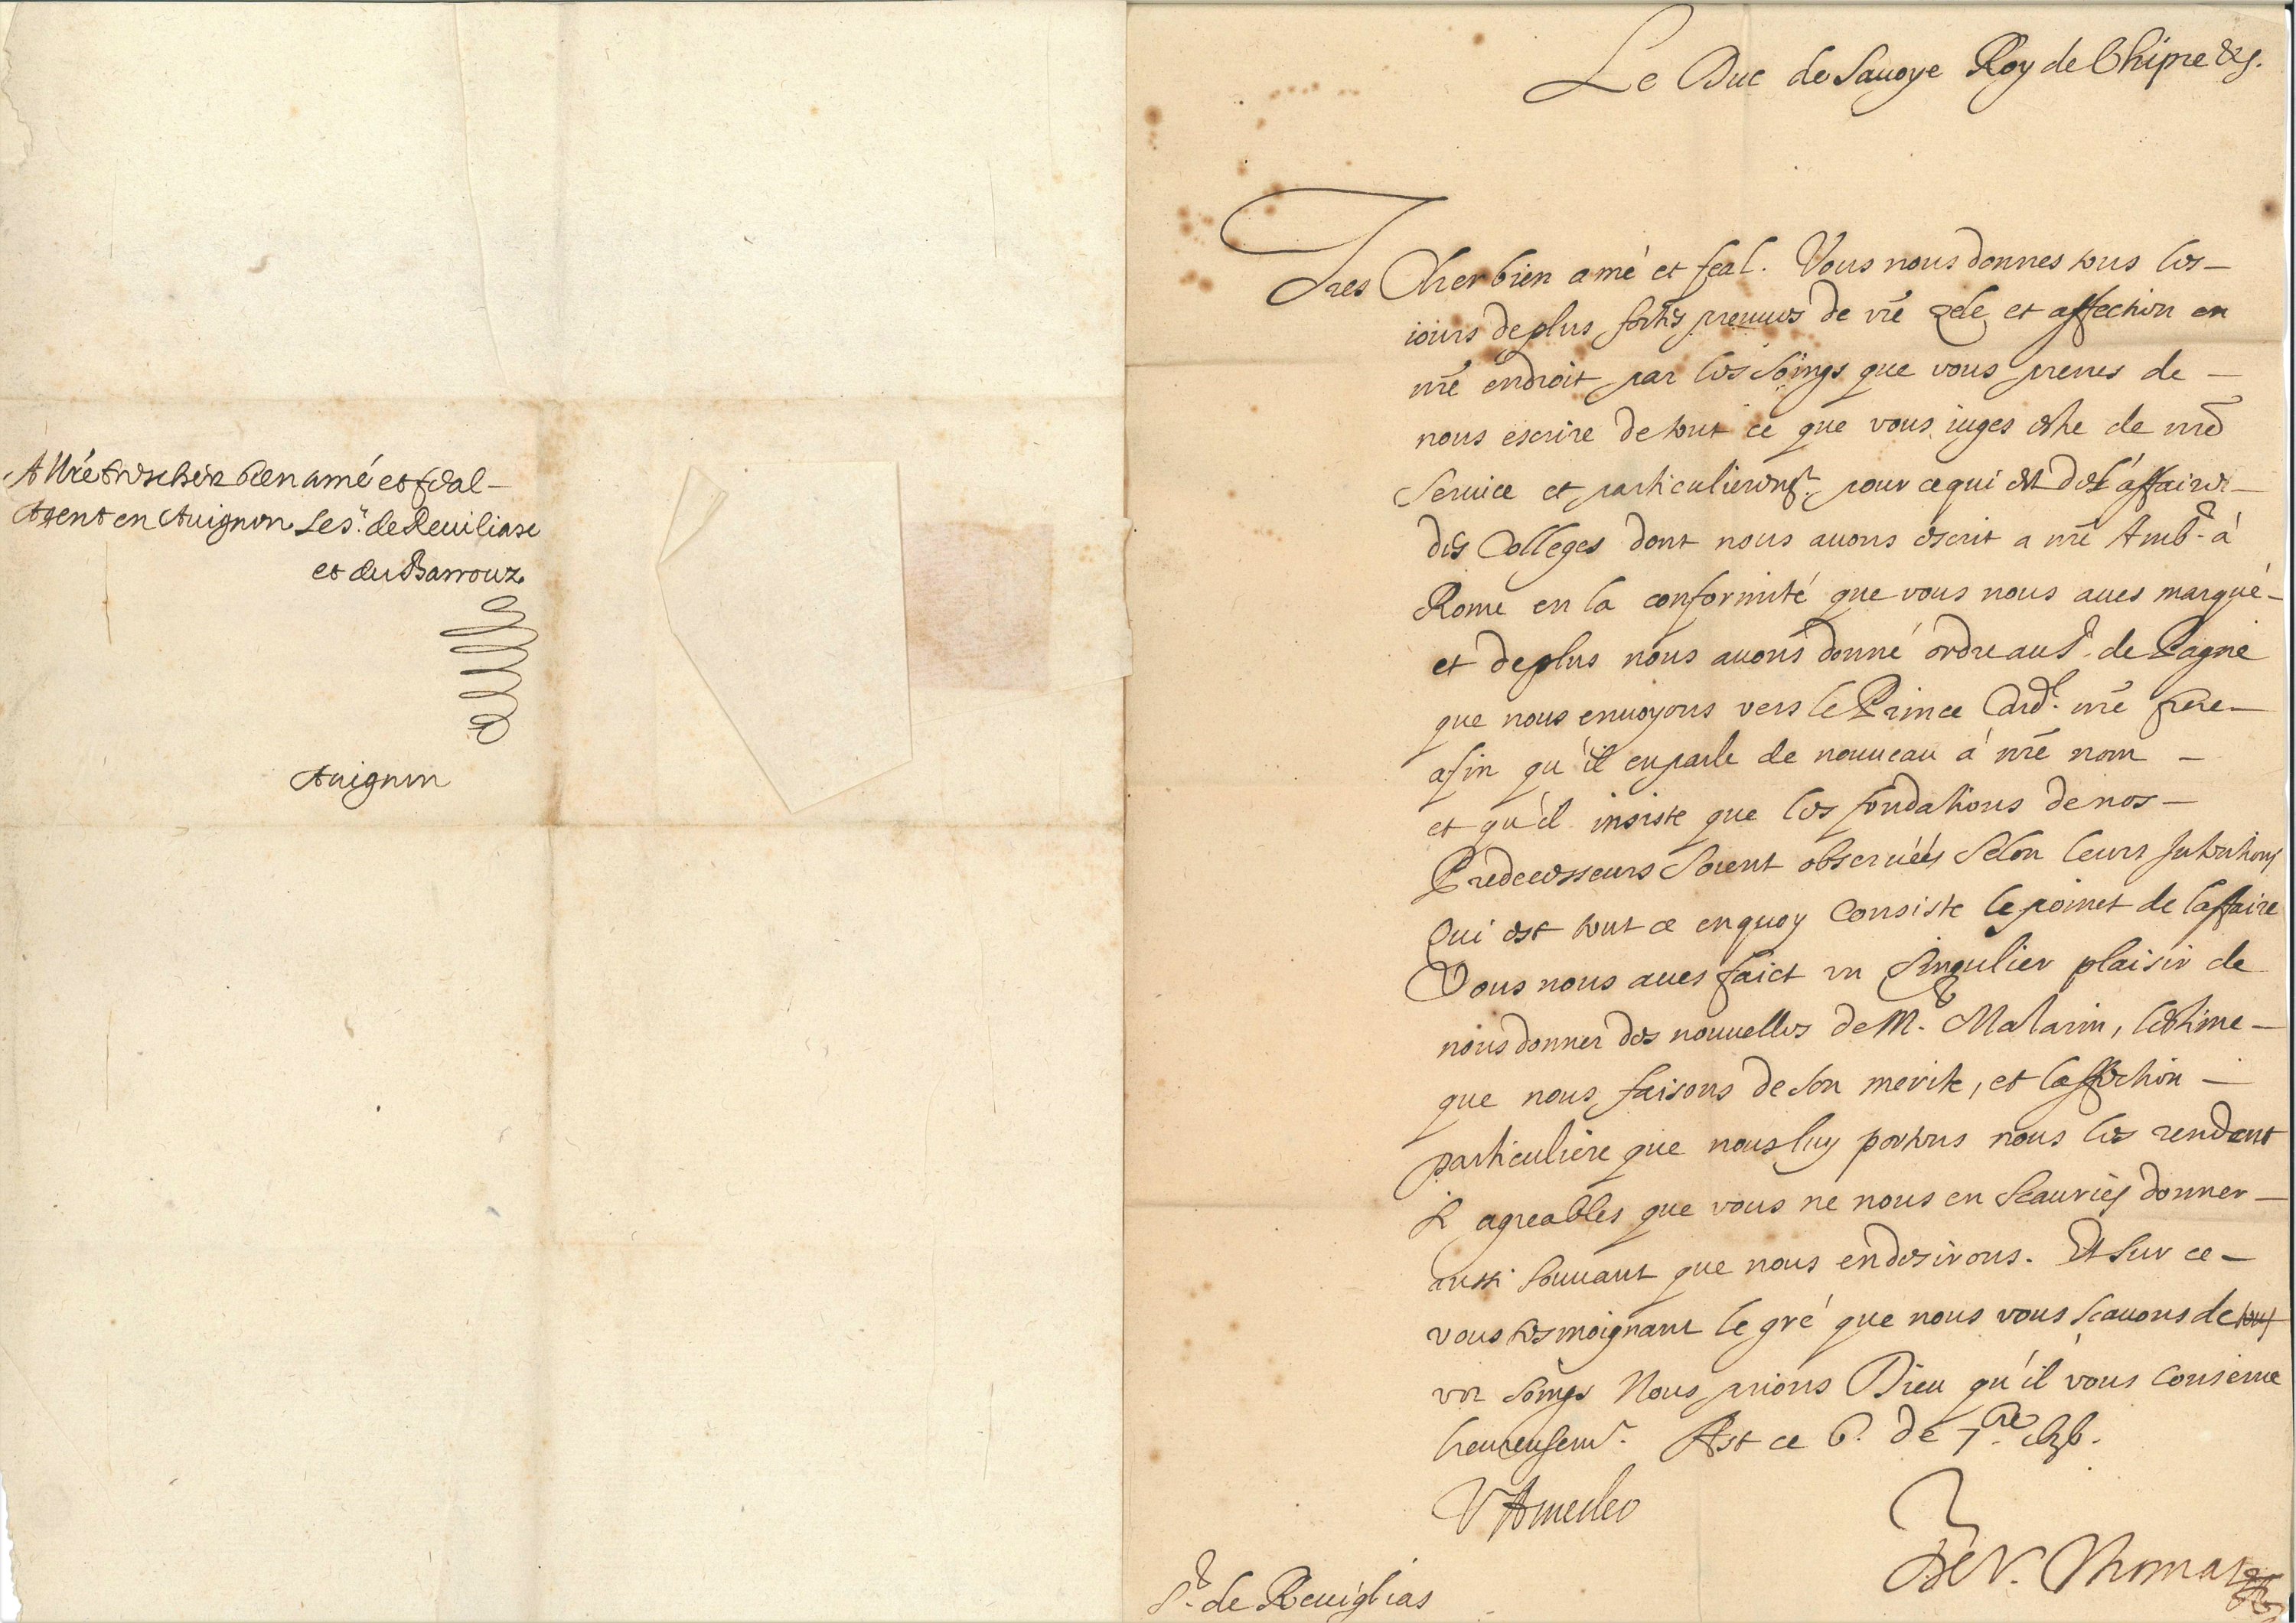 A Nre tres cher bien amé et feal
Agent en Auignon Le Sr. de Reuiliasc
et du Barrouz
Auignon
Le Duc de Sauoye Roy de Chipre &c.
Tres Cher bien amé et feal. Vous nous donnes tous les
iours de plus fortes preuues de vre zele et affection en
nre endroit par les soings que vous prenes de
nous escrire de tout ce que vous iuges estre de nre
seruice et particulieremt. pour ce qui est des affaires
des Colleges dont nous auons escrit a nre Ambr. à
Rome en la conformité que vous nous aues marqué
et de plus nous auons donné ordre au Sr. de Pagné
que nous enuoyons vers le Prince Cardl. nre frere
afin qu'il en parle de nouueau à nre nom
et qu'il insiste que les fondations de nos
Predecesseurs soient obseruéés selon leurs Intentions
Qui est tout ce en quoy consiste le poinct de laffaire
Vous nous aues faict vn singulier plaisir de
nous donner des nouuelles de Mr. Mazarin, lestime
que nous faisons de son merite, et laffection
particuliere que nous luy portons nous les rendent
si agreables que vous ne nous en scauriés donner
aussi souuant que nous en desirons. Et sur ce
vous tesmoignant le gré que nous vous scauons de
vos soings Nous prions Dieu qu'il vous conserue
heureusemt. Ast ce 6. de 7.bre
V Amedeo
De S. Thomas
Sr. de Reuiglias